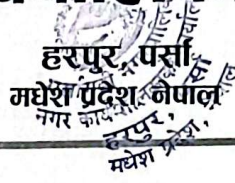 हरपुर, पर्सा
मधेश प्रदेश, नेपाल
नगर कार्य
हरपुर,
मधेश प्रदेश,